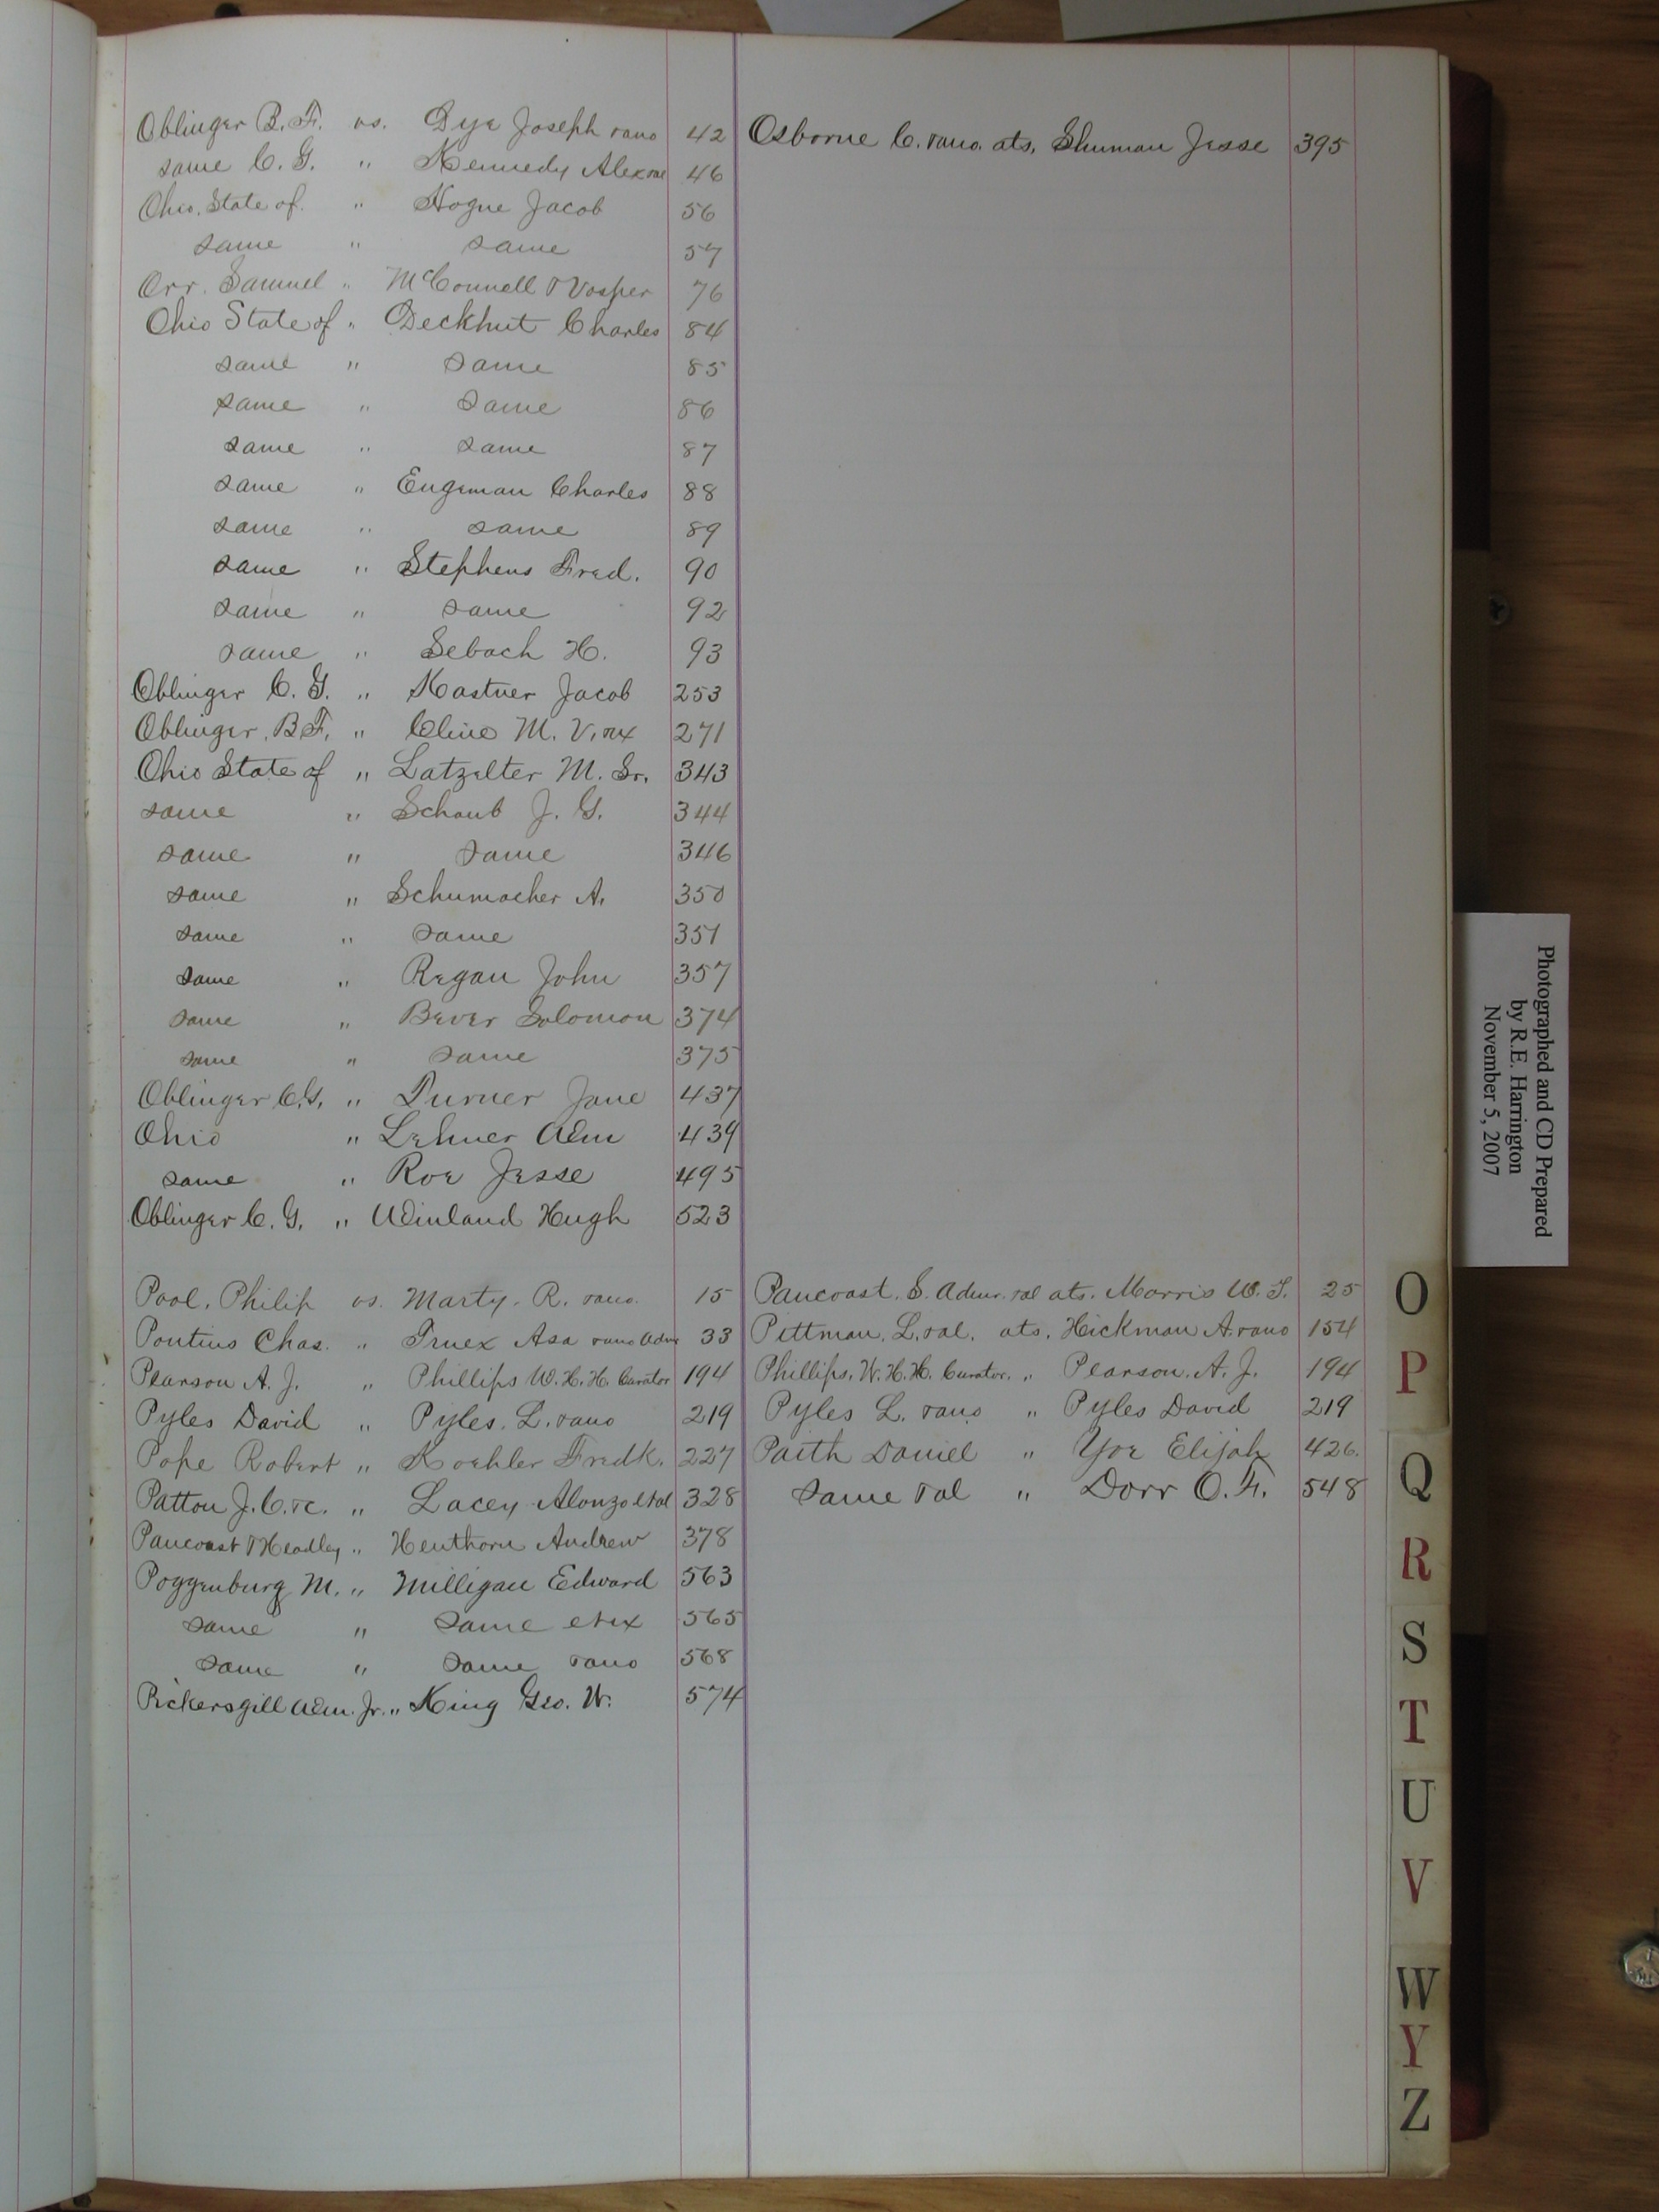 Oblinger B. F. vs. Dye Joseph & ano 42
same C. G. " Kennedy Alex & al 46
Ohio, State of " Hogue Jacob 56
same " same 57
Orr. Samuel " McConnell & Vosper 76
Ohio State of " Deckhut Charles 84
same " same 85
same " same 86
same " same 87
same " Engeman Charles 88
same " same 89
same " Stephens Fred. 90
same " same 92
same " Sebach H. 93
Oblinger C. G. " Kastner Jacob 253
Oblinger, B F. " Cline M. V. & ux 271
Ohio State of " Latzelter M. Sr. 343
same " Schaub J. G. 344
same " same 346
same " Schumacher A. 350
same " same 351
same " Regan John 357
same " Bever Solomon 374
same " same 375
Oblinger C. G. " Turner Jane 437
Ohio " Lehner Wm 439
same " Roe Jesse 495
Oblinger C. G. " Winland Hugh 523
Osborne C. & ano. ats. Shuman Jesse 395
Pool, Philip vs. Marty. R. & ano. 15
Pontius Chas. " Truex Asa & ano Admr 33
Pearson A. J. " Phillips W. H. H. Curator 194
Pyles David " Pyles. L. & ano 219
Pope Robert " Koehler Fredk. 227
Patton J. C. &c. " Lacey Alonzo et al 328
Pancoast & Headley " Henthorn Andrew 378
Poggenburg M. " Milligan Edward 563
same " same et ux 565
same " same & ano 568
Pickersgill Wm. Jr. " King Geo. W. 574
Pancoast. S. Admr. & al ats. Morris W. T. 25
Pittman, L. & al. ats. Hickman A. & ano 154
Phillips, W. H. H. Curator. " Pearson. A. J. 194
Pyles L. & ano " Pyles David 219
Paith Daniel " Yoe Elijah 426.
same & al " Dorr O. F. 548
O
P
Q
R
S
T
U
V
W
Y
Z
Photographed and CD Prepared
by R.E. Harrington
November 5, 2007